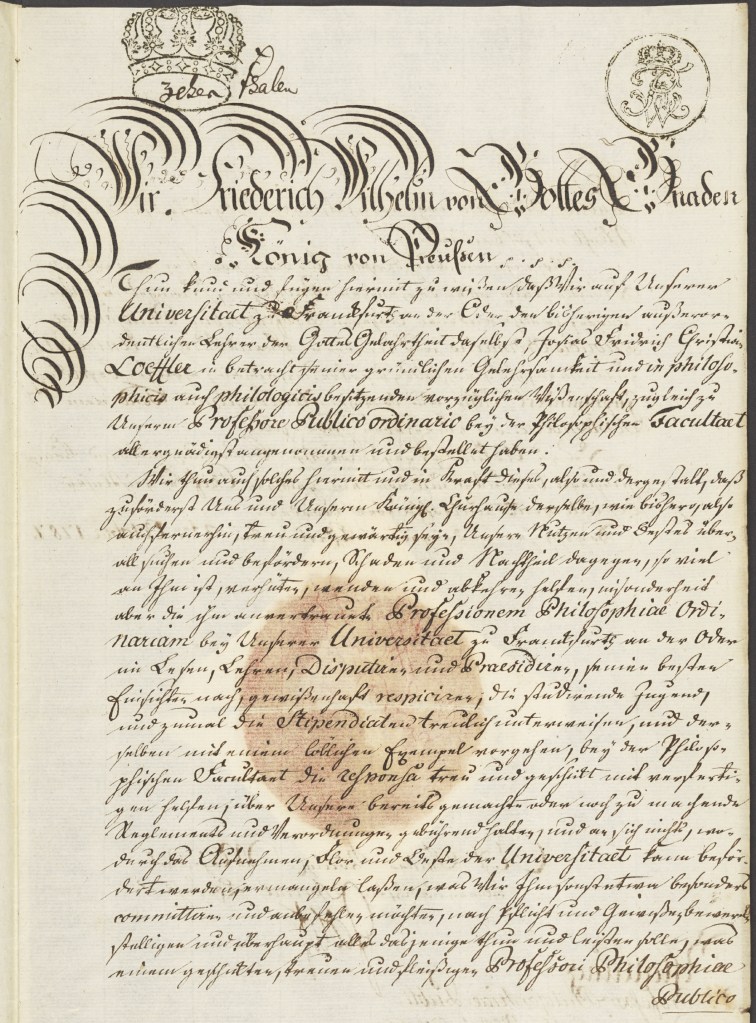 zehen Thaler
Wir. Friederich Wilhelm von Gottes Gnaden
König von Preußen
Thun kund und fügen hiermit zu wißen daß Wir auf Unserer
Universitaet zu Franckfurth an der Oder den bisherigen außeror-
dentlichen Lehrer der Gottes Gelahrtheit daselbst, Josias Fridrich Christian
Loeffler in betracht seiner gründlichen Gelehrsamkeit und in philoso-
phicis auch philologicis besitzenden vorzüglichen Wißenschaft, zugleich zu
Unserm Professore Publico ordinario bey der Philosophischen Facultaet
allergnädigst angenommen und bestellet haben.
Wir thun auch solches hiermit und in Kraft dieses, also und dergestalt, daß
zuförderst Uns und Unserm Königl. Churhause derselbe, wie bishero, also
auch fernerhin, treu und gewärtig seyn, Unsere Nutzen und Bestes über-
all suchen und befördern, Schaden und Nachtheil dagegen, so viel
an Ihm ist, verhüten, wenden und abkehren helfen, insonderheit
aber die ihm anvertraute Professionem Philosophiae Ordi-
nariam bey Unserer Universitaet zu Franckfurth an der Oder
im Lesen, Lehren, Disputiren und Praesidiren, seinen besten
Einsichten nach, gewißenhaft respiciren, die studirende Jugend,
und zumal die Stipendiaten treulich unterweisen, und der-
selben mit einem löblichen Exempel vorgehen, bey der Philoso-
phischen Facultaet die responsa treu und geschickt mit verferti-
gen helfen, über Unsere bereits gemachte oder noch zu machende
Reglements und Verordnungen gebührend halten, und an sich nichts, wo-
durch das Aufnehmen, Flor und Beste der Universitaet kann beför-
dert werden, ermangeln laßen, was Wir Ihm sonst etwa besonders
committiren und anbefehlen möchten, nach Pflicht und Gewißen bewerk-
stelligen und überhaupt alles dasjenige thun und leisten solle, was
einem geschickten, treuen und fleißigen Professori Philosophiae
Publico